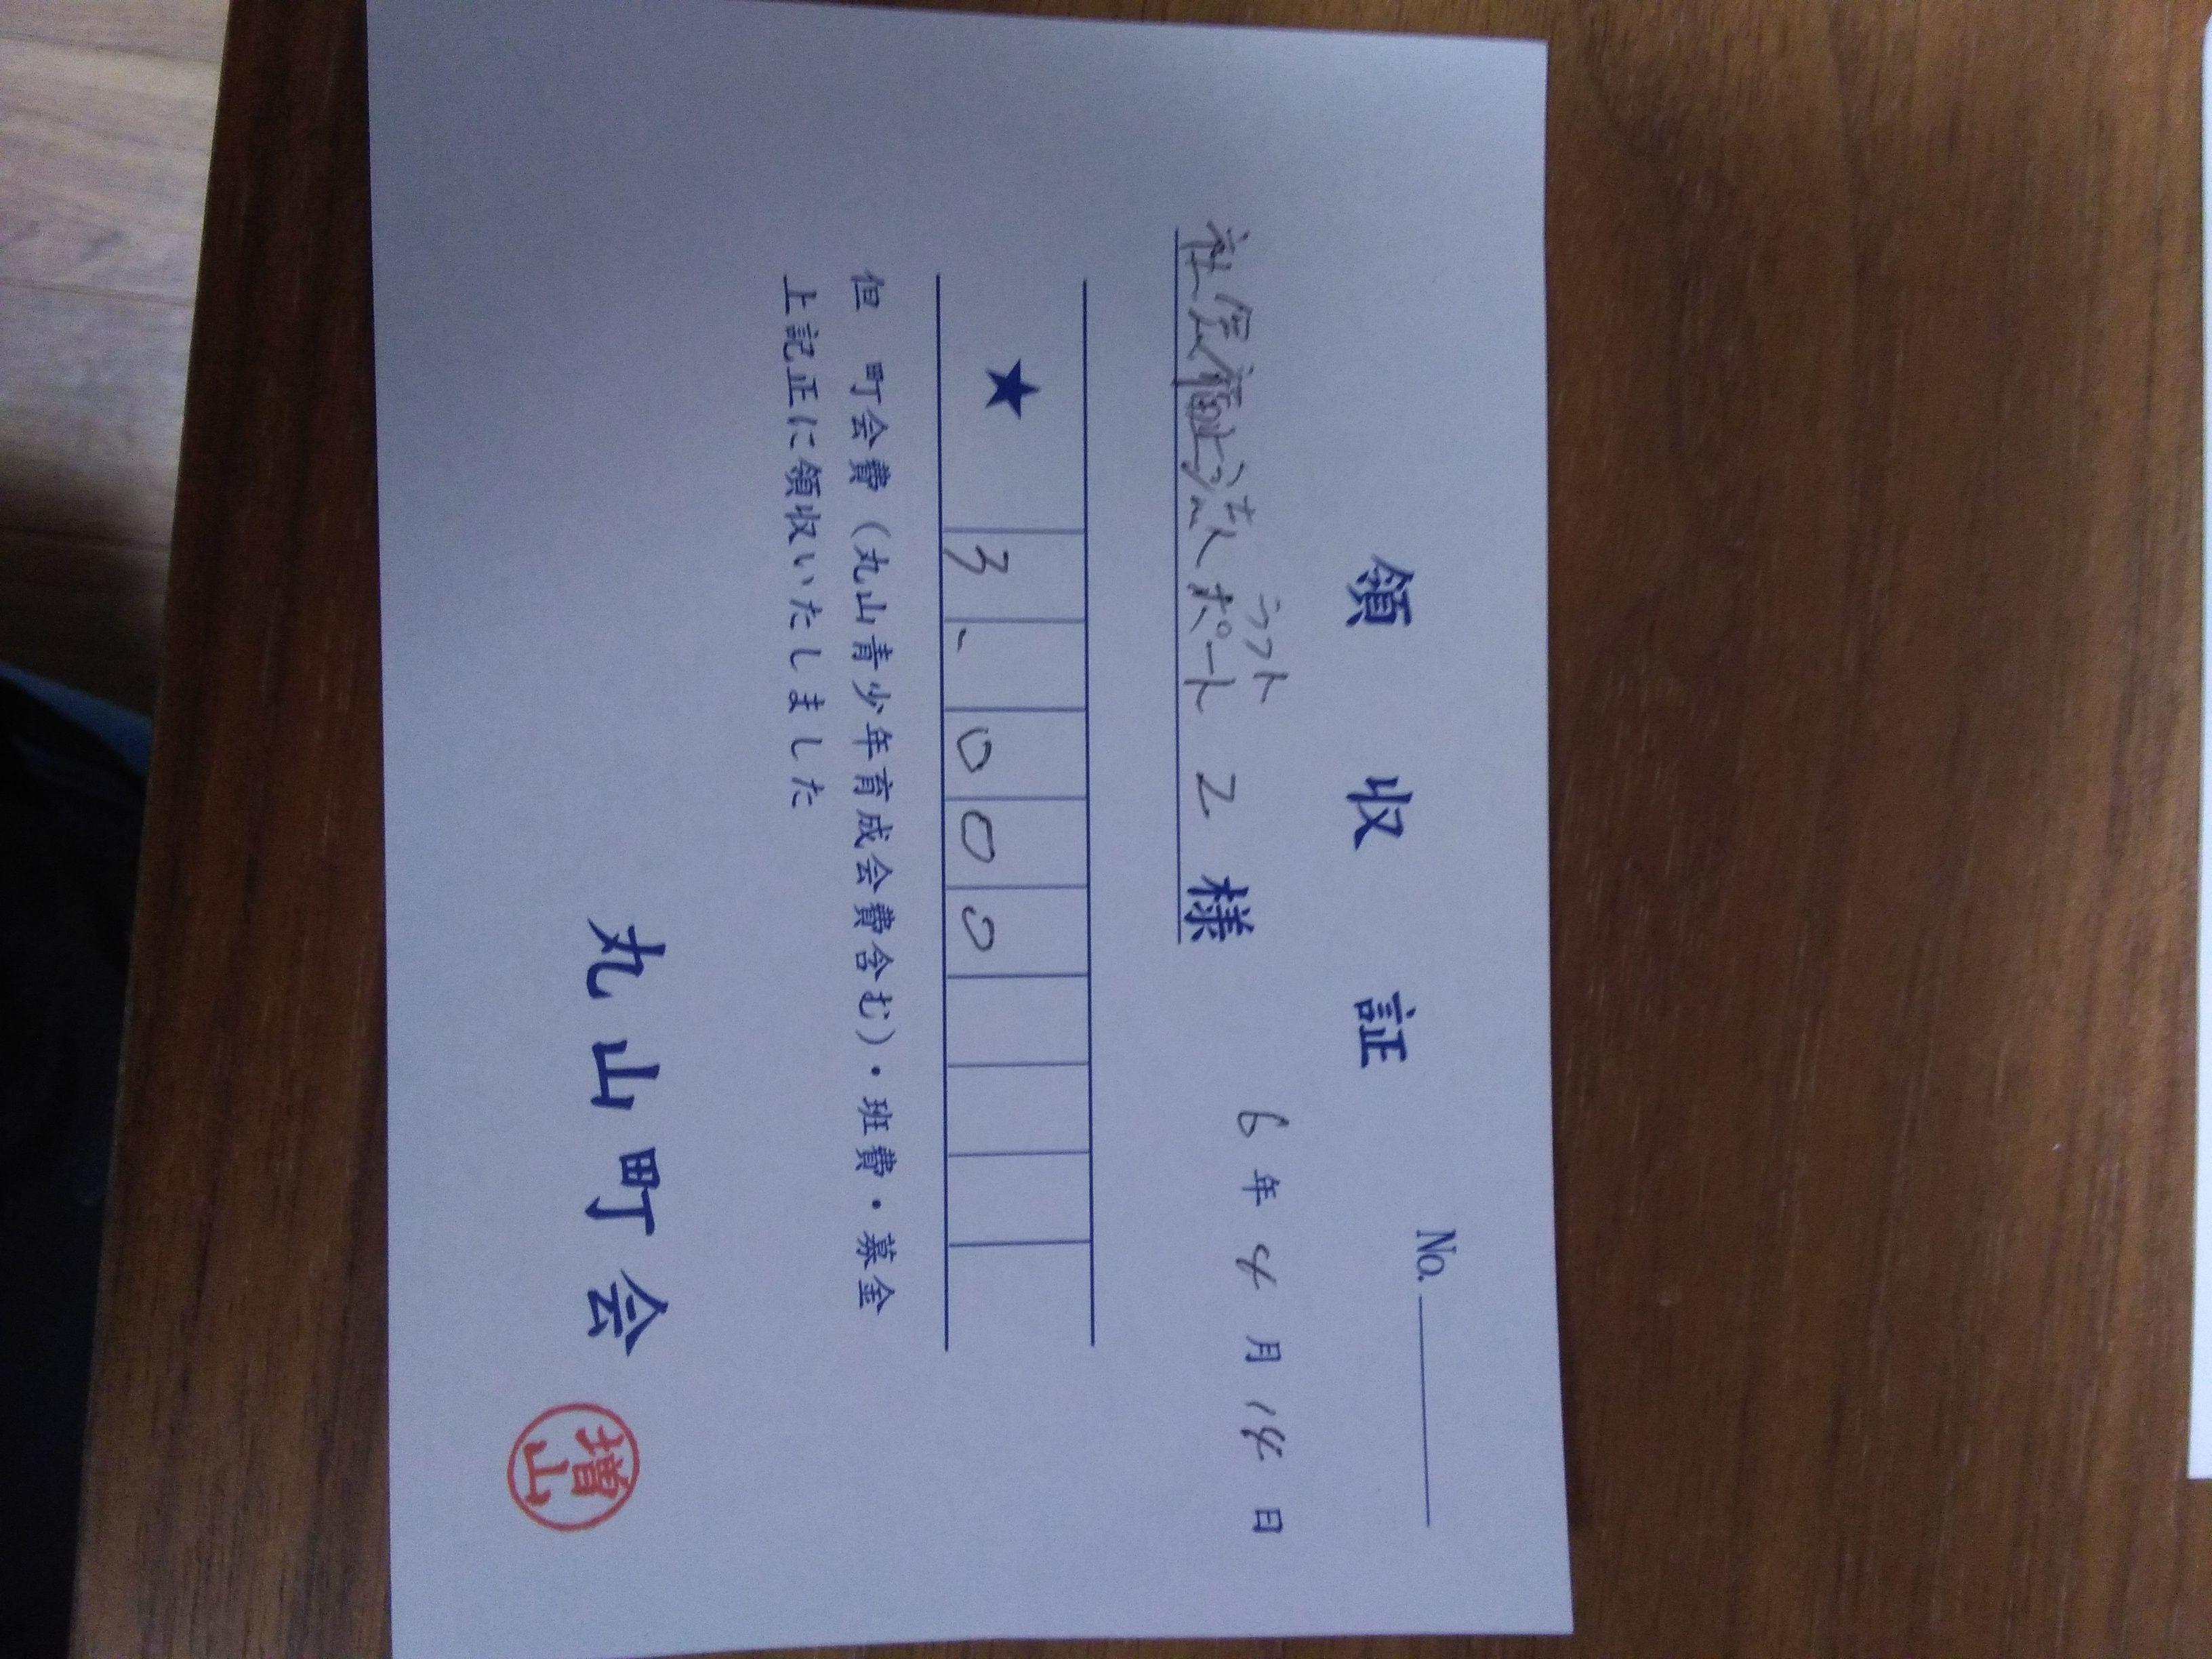 No.
領収証
6年4月14日
ラフト
社会福祉法人 ポート2様
★ 3、000
但 町会費（丸山青少年育成会費含む）・班費・募金
上記正に領収いたしました
丸山町会
増山